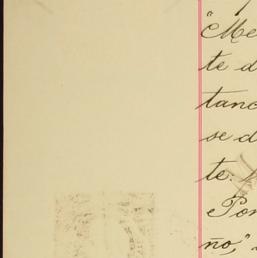 "Me
te d
tanc
se d
te.
Por
ño,"